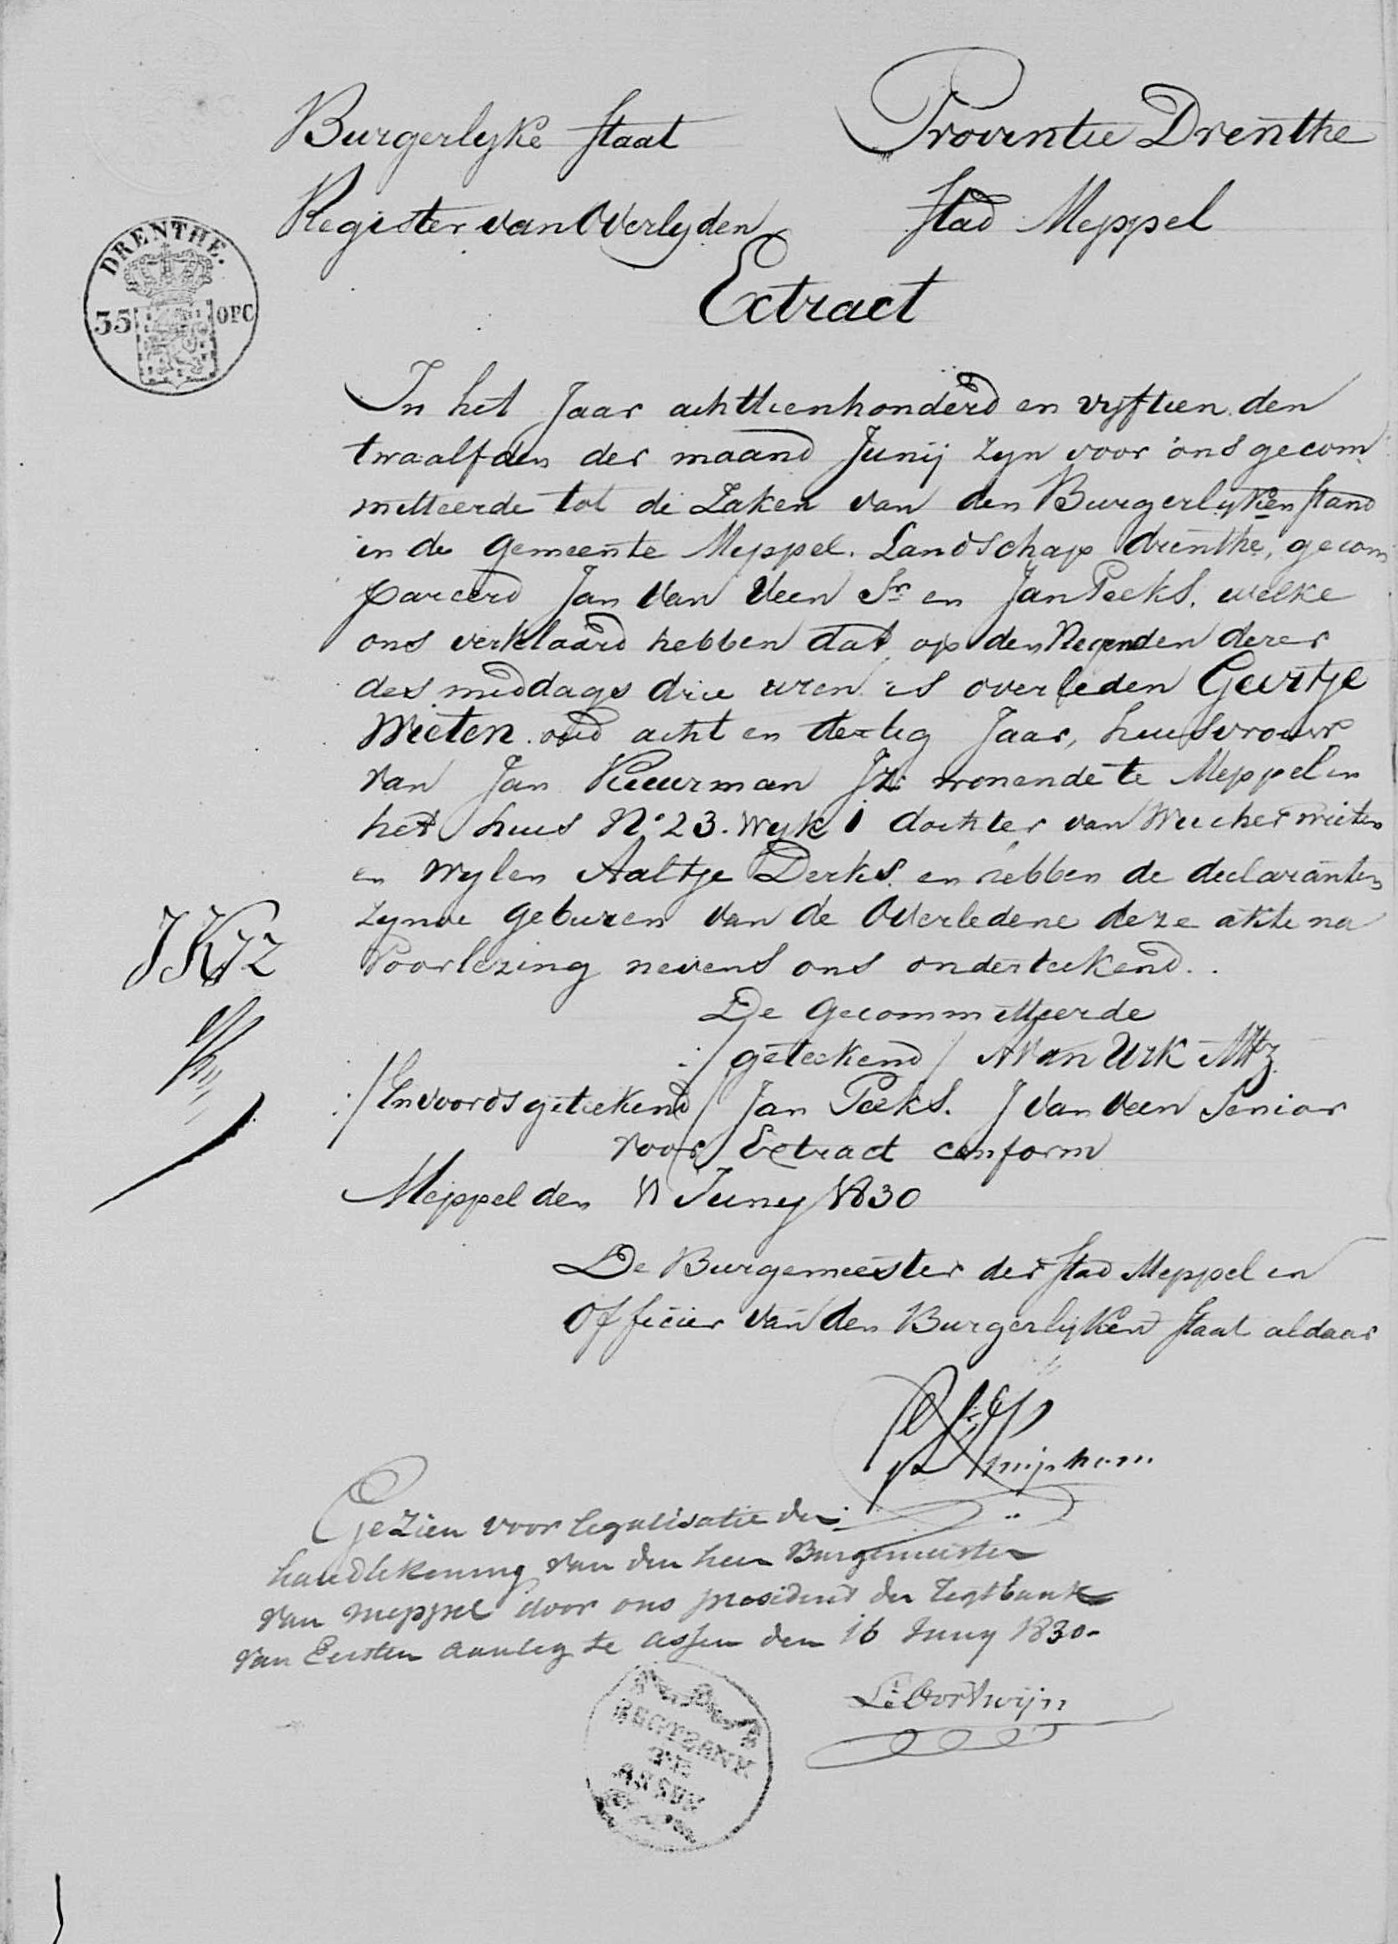 Burgerlyke Staat
Provintie Drenthe
Register van Overlyden
Stad Meppel
DRENTHE.
35 OPC
Extract
In het Jaar achttienhonderd en vyftien den
twaalfden der maand Junij zyn voor ons gecom
mitteerde tot de Zaken van den Burgerlyken Stand
in de Gemeente Meppel. Landschap Drenthe, gecom
pareerd Jan Van Veen Sr en Jan Peeks. welke
ons verklaard hebben dat op den Negenden dezer
des middags drie uren is overleden Geertje
Wieten oud acht en dertig Jaar, huisvrouw
van Jan Kuurman Jz wonende te Meppel in
het huis No 23. Wyk 1 dochter van Wiecher Wieten
en Wylen Aaltje Derks. en hebben de declaranten
zynde geburen van de Overledene deze akte na
Voorlezing nevens ons onderteekend..
JKJZ
De Gecommitteerde
:/geteekend/ A Van Urk Mz
:/Invoords geteekend/ Jan Peeks. J Van Veen Senior
voor Extract conform
Meppel den 11 Juny 1830
De Burgemeester der Stad Meppel en
Officier van den Burgerlijken Staat aldaar
Knijphom
Gezien voor legalisatie der
handtekening van den heer Burgemeester
van Meppel door ons president der regtbank
van Eersten aanleg te Assen den 16 Juny 1830-
L: Oortwijn
REGTBANK
TE
ASSEN